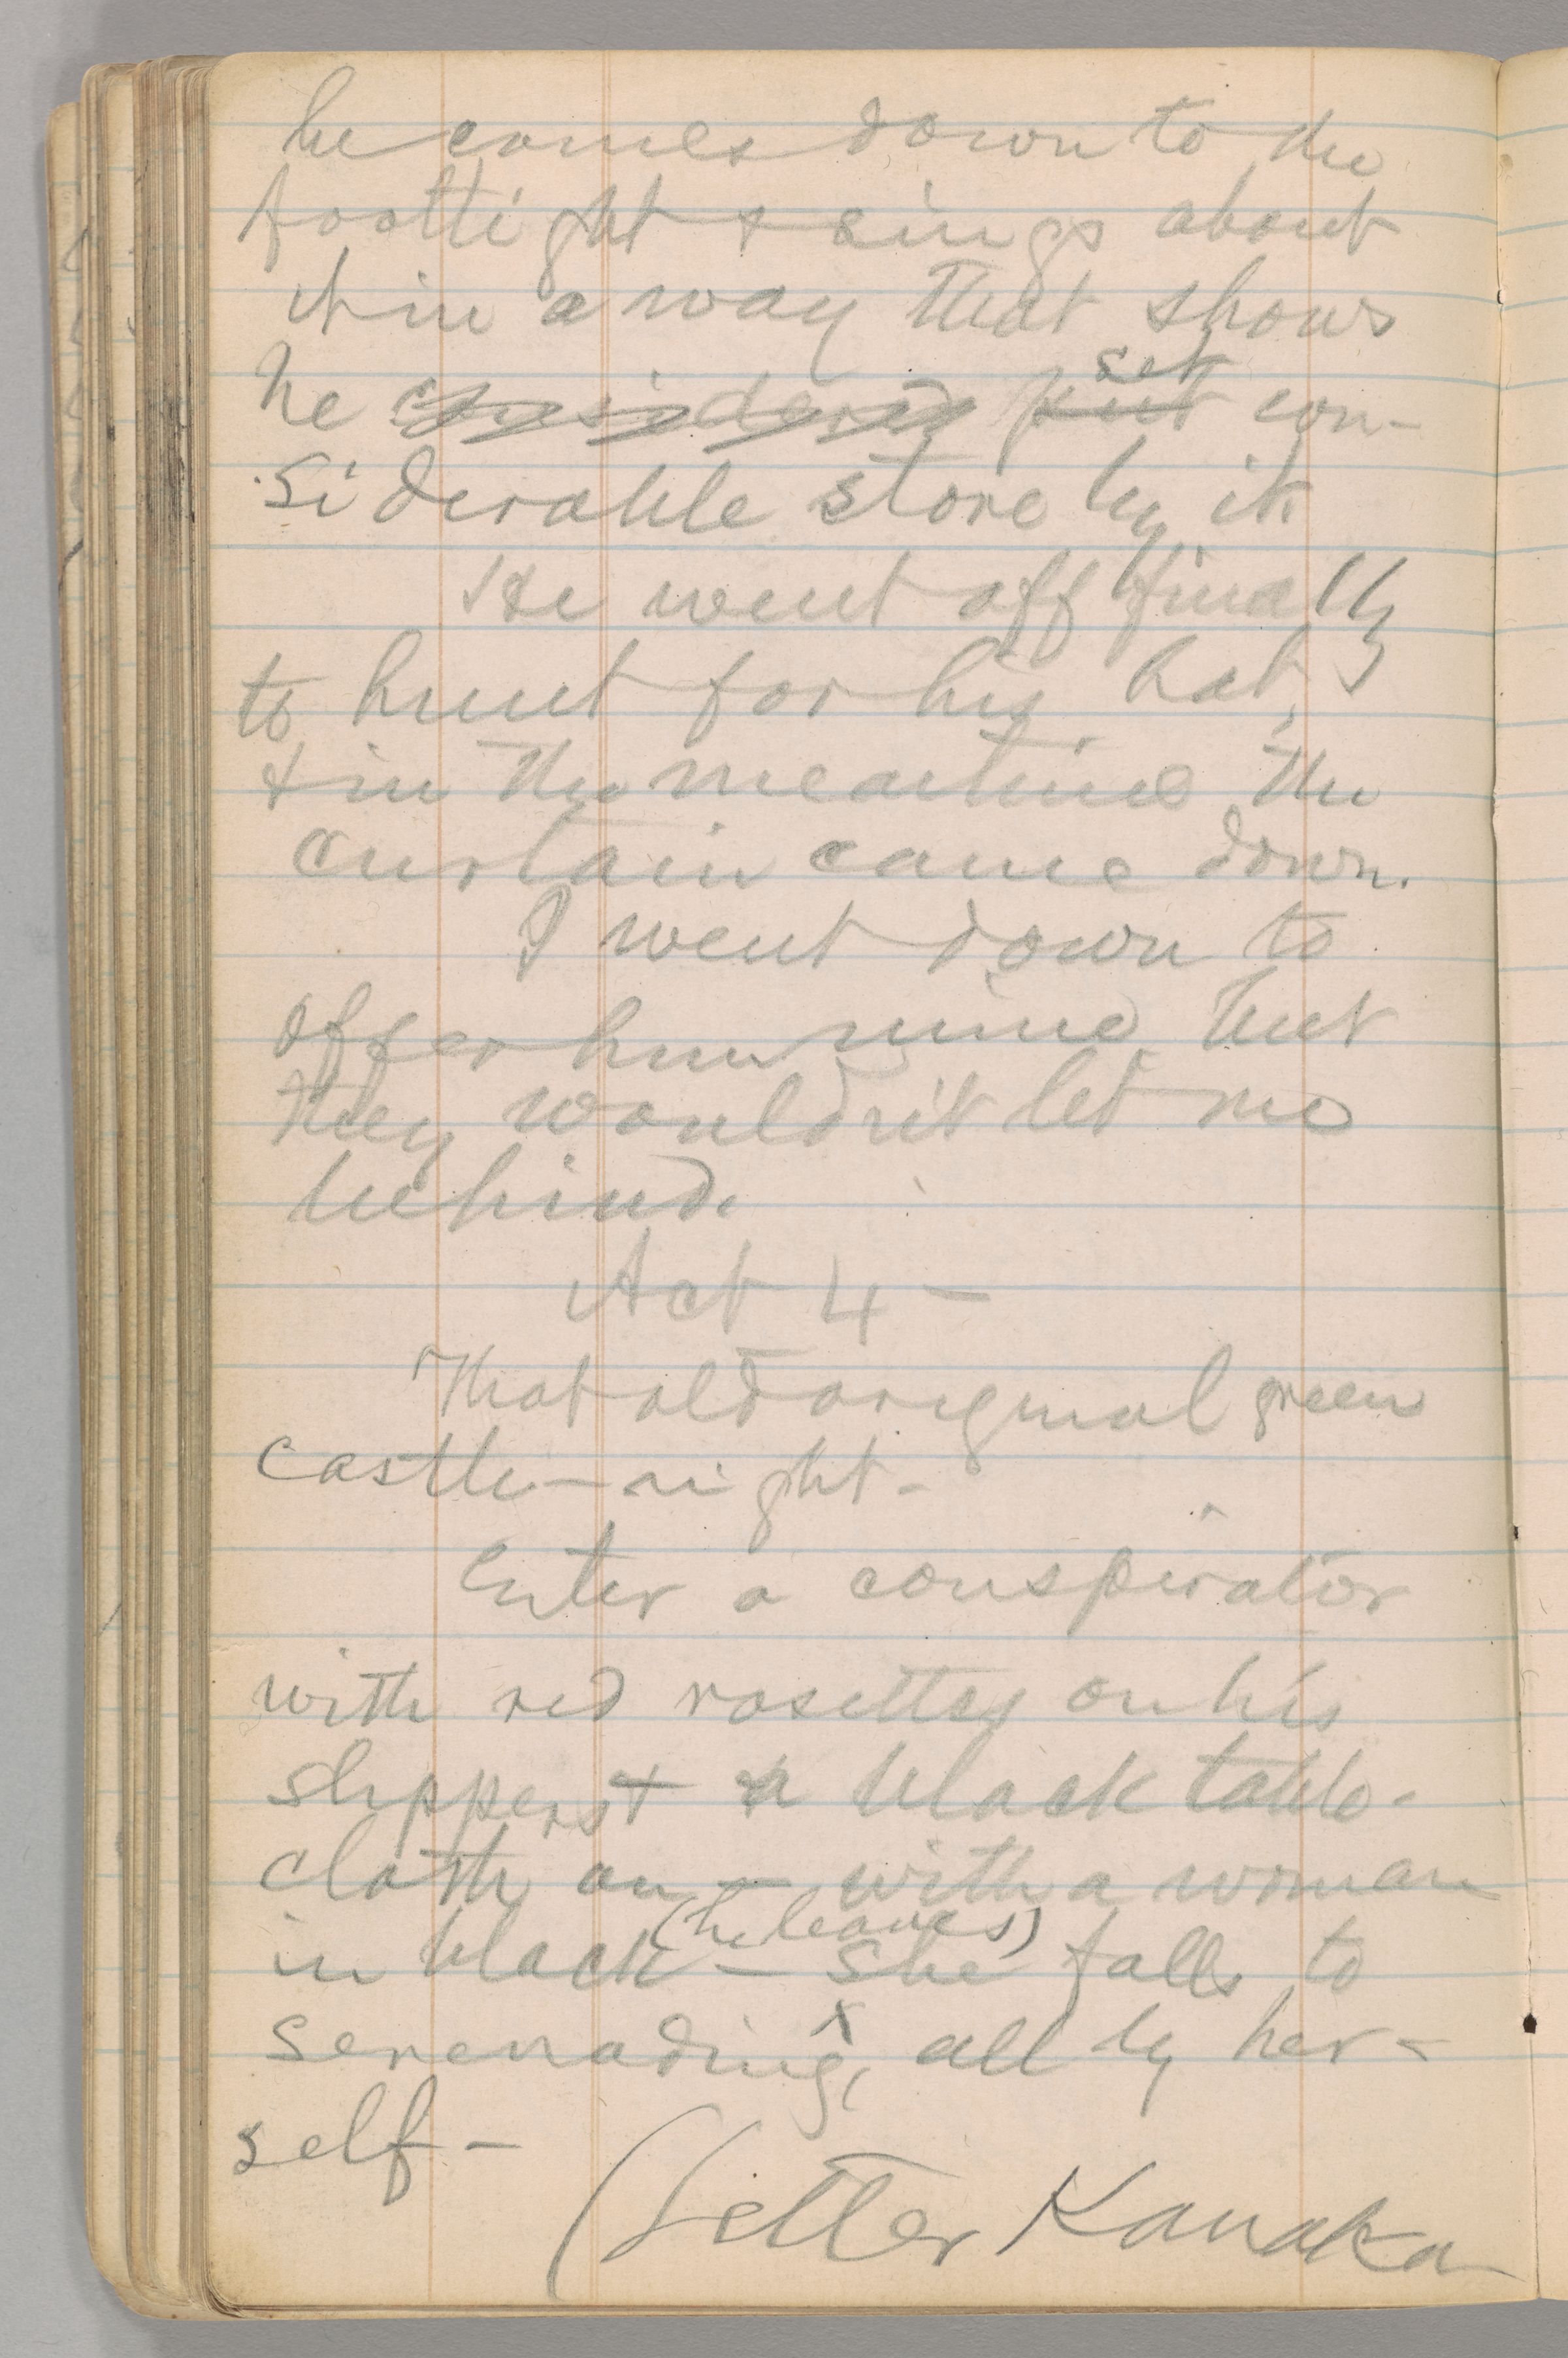 he comes down to the
footlight & sings about
it in a way that shows
he considered put set con-
siderable store by it.
He went off finally
to hunt for his hat,
& in the meantime the
curtain came down.
I went down to
offer him mine, but
they wouldn't let me
behind.
Act 4 —
That old original green
castle — night —
Enter a conspirator
with red rosettes on his
slippers & a black table-
cloth on — with a woman
in black — (he leaves) She falls to
serenading, all by her-
self —
(Letter Kanaka